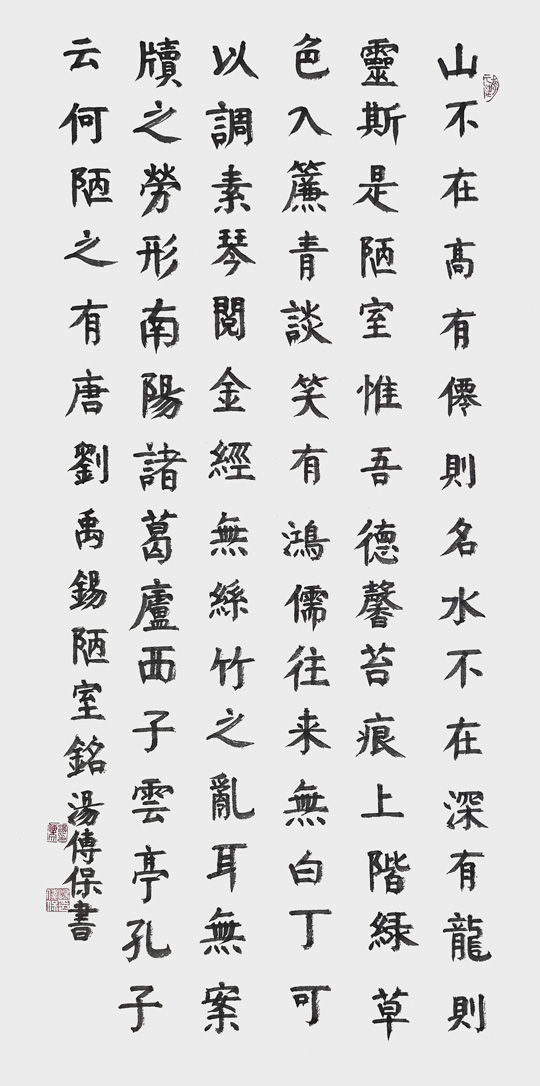 山不在髙有僊則名水不在深有龍則
靈斯是陋室惟吾德馨苔痕上階緑草
色入簾青談笑有鴻儒往来無白丁可
以調素琴閱金經無絲竹之亂耳無案
牘之勞形南陽諸葛廬西子雲亭孔子
云何陋之有唐劉禹錫陋室銘湯傳保書